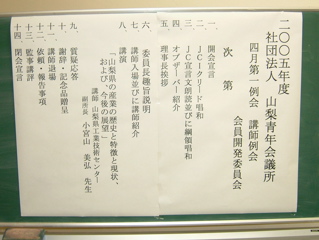 二〇〇五年度
社団法人 山梨青年会議所
四月第一例会 講師例会
会員開発委員会
次 第
一、開会宣言
二、JCIクリード唱和
三、JC宣言文朗読並びに綱領唱和
四、オブザーバー紹介
五、理事長挨拶
六、委員長趣旨説明
七、講師入場並びに講師紹介
八、講演
「山梨県の産業の歴史と特徴と現状、
および、今後の展望」
講師 山梨県工業技術センター
副所長 小宮山 美弘 先生
九、質疑応答
十、謝辞・記念品贈呈
十一、講師退場
十二、依頼・報告事項
十三、監事講評
十四、閉会宣言